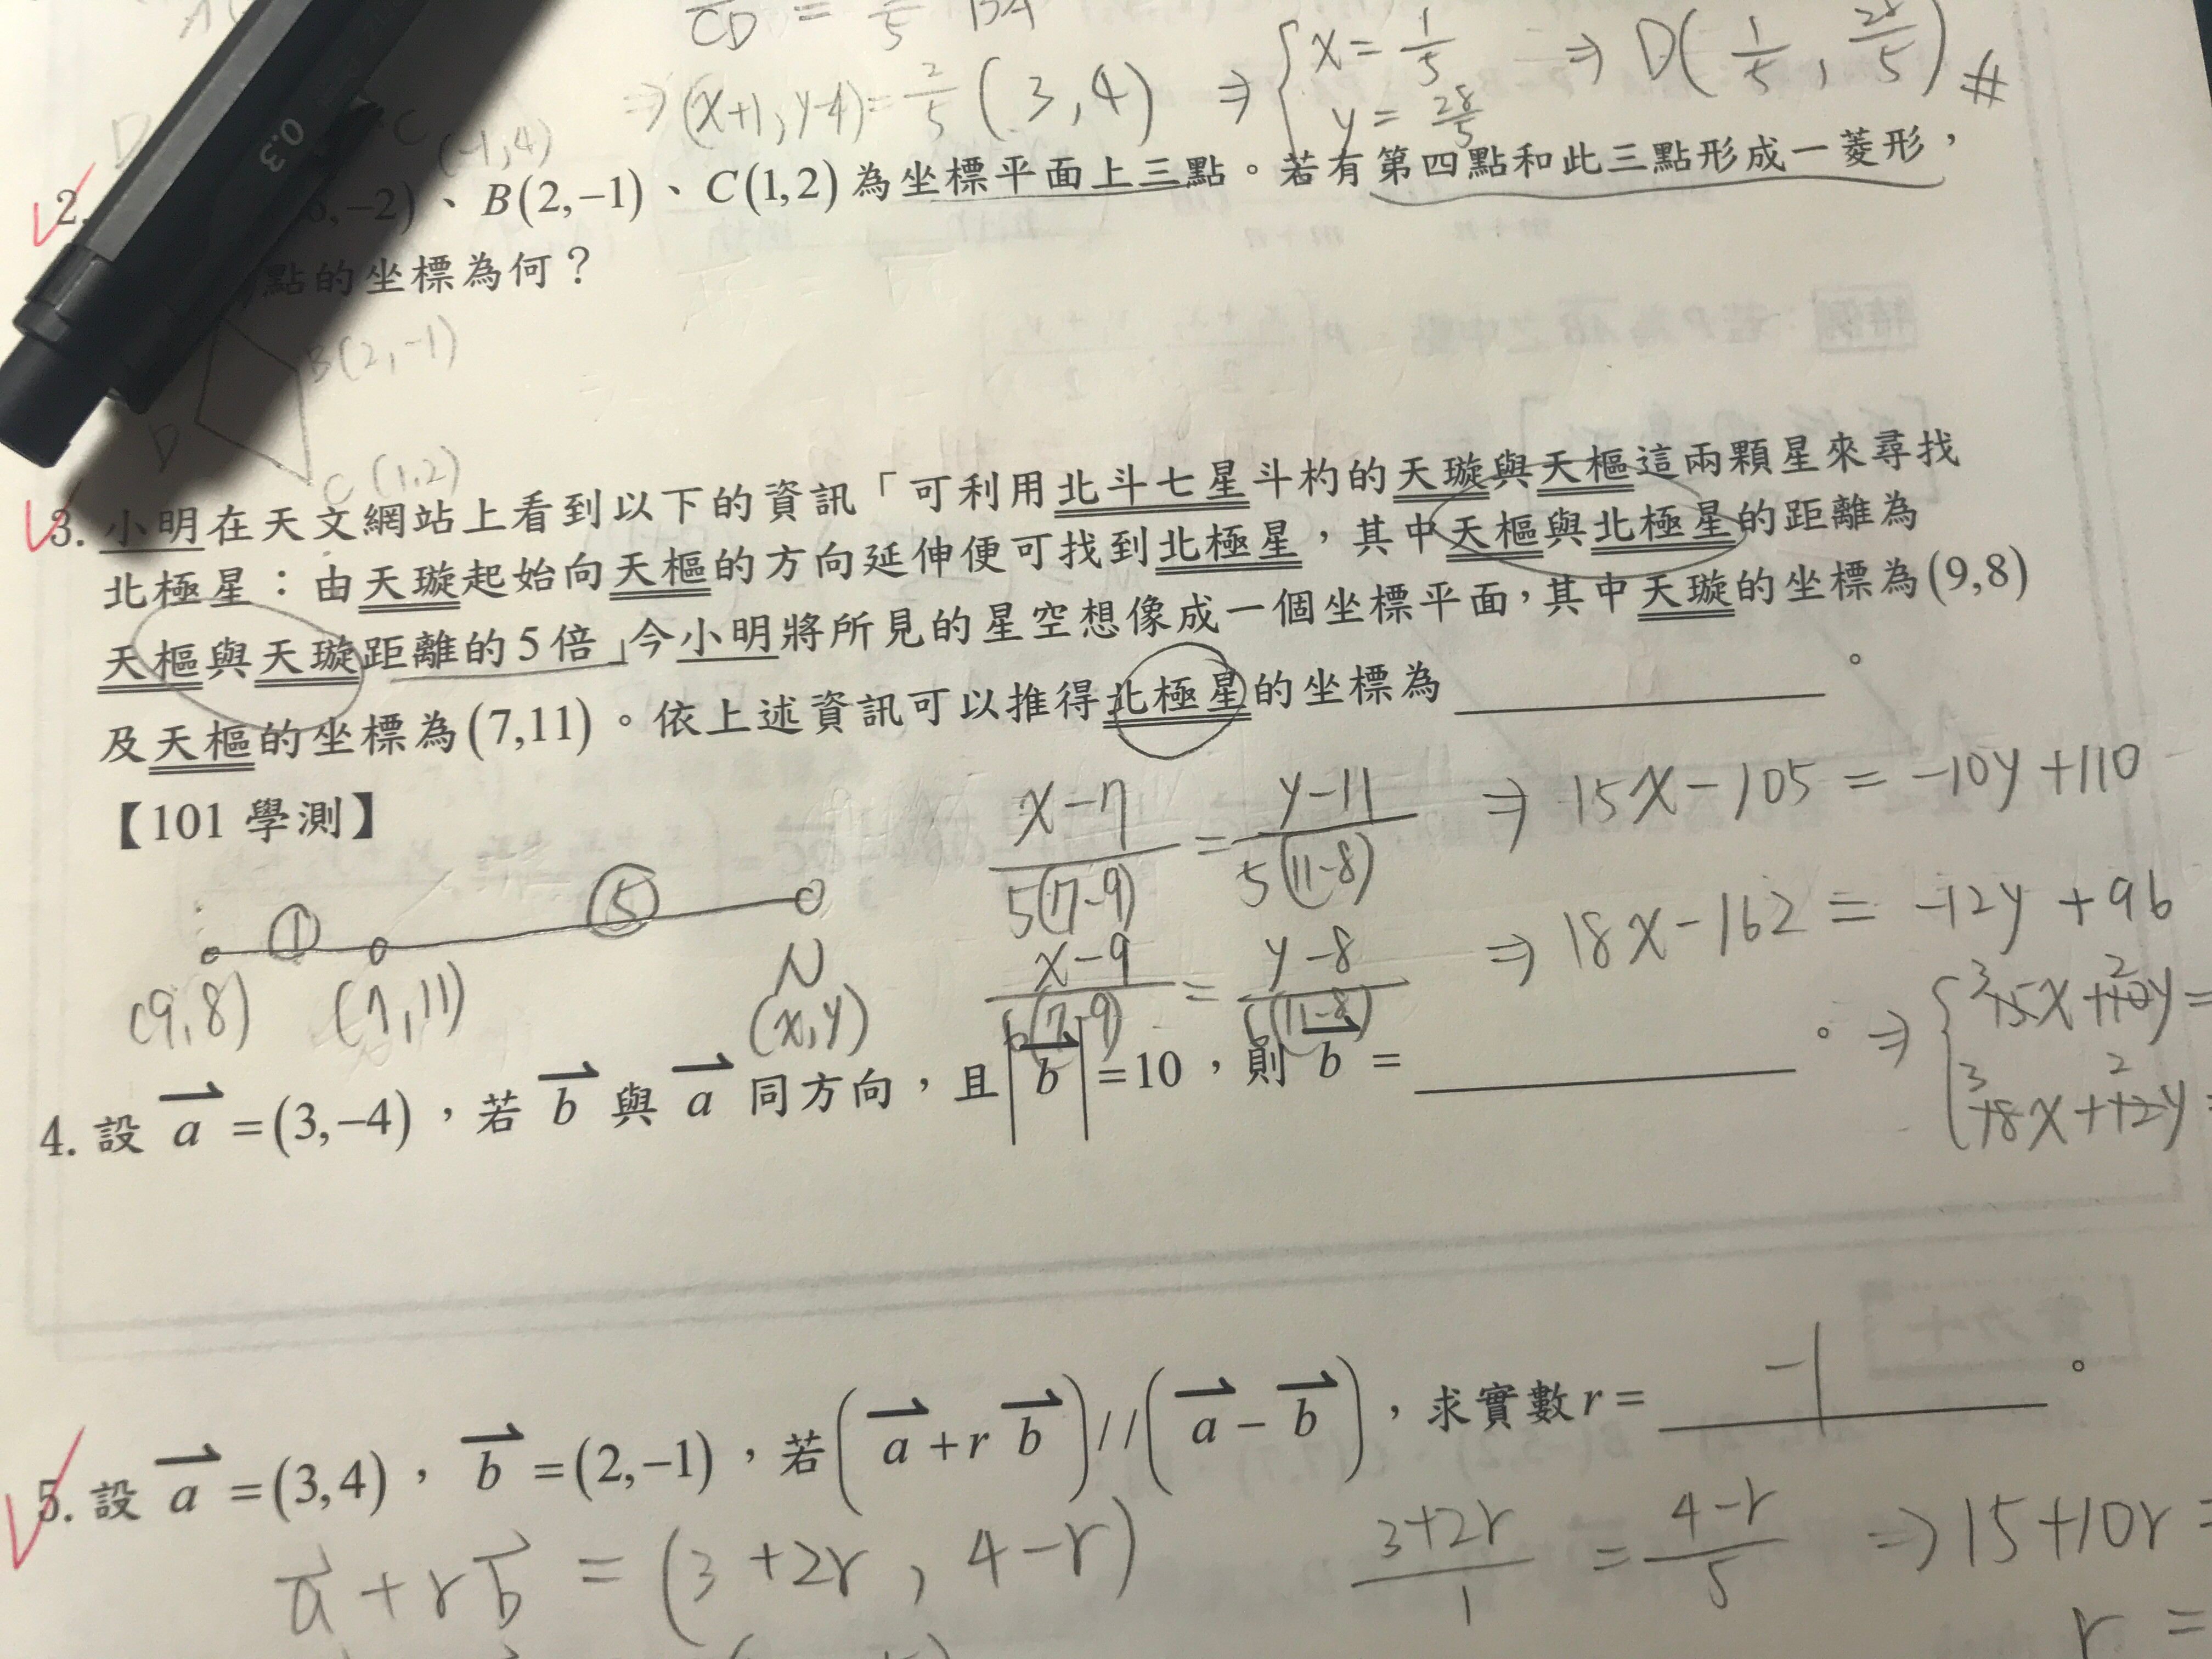 CD = /5 BA
⇒ (x+1, y-4) = 2/5 (3, 4) ⇒ { x = 1/5 ⇒ D(1/5, 28/5) #
y = 28/5
D C (-1,4)
0.3
2. , -2)、B(2,-1)、C(1,2)為坐標平面上三點。若有第四點和此三點形成一菱形，
點的坐標為何？
B(2,-1)
D
C (1,2)
3. 小明在天文網站上看到以下的資訊「可利用北斗七星斗杓的天璇與天樞這兩顆星來尋找
北極星：由天璇起始向天樞的方向延伸便可找到北極星，其中天樞與北極星的距離為
天樞與天璇距離的5倍」今小明將所見的星空想像成一個坐標平面，其中天璇的坐標為(9,8)
及天樞的坐標為(7,11)。依上述資訊可以推得北極星的坐標為。
【101 學測】
(x-7)/(5(7-9)) = (y-11)/(5(11-8)) ⇒ 15x-105 = -10y+110
① ⑤
(9,8) (7,11) N (x,y)
(x-9)/(6(7-9)) = (y-8)/(6(11-8)) ⇒ 18x-162 = -12y+96
⇒ { 3 15x + 2 10y =
3 18x + 2 12y =
4. 設 a⇀ = (3,-4)，若 b⇀ 與 a⇀ 同方向，且 |b⇀| = 10，則 b⇀ = 。
5. 設 a⇀ = (3,4)，b⇀ = (2,-1)，若 (a⇀ + r b⇀) // (a⇀ - b⇀)，求實數 r = -1。
a⇀ + r b⇀ = (3+2r, 4-r)
(3+2r)/1 = (4-r)/5 ⇒ 15+10r =
r =